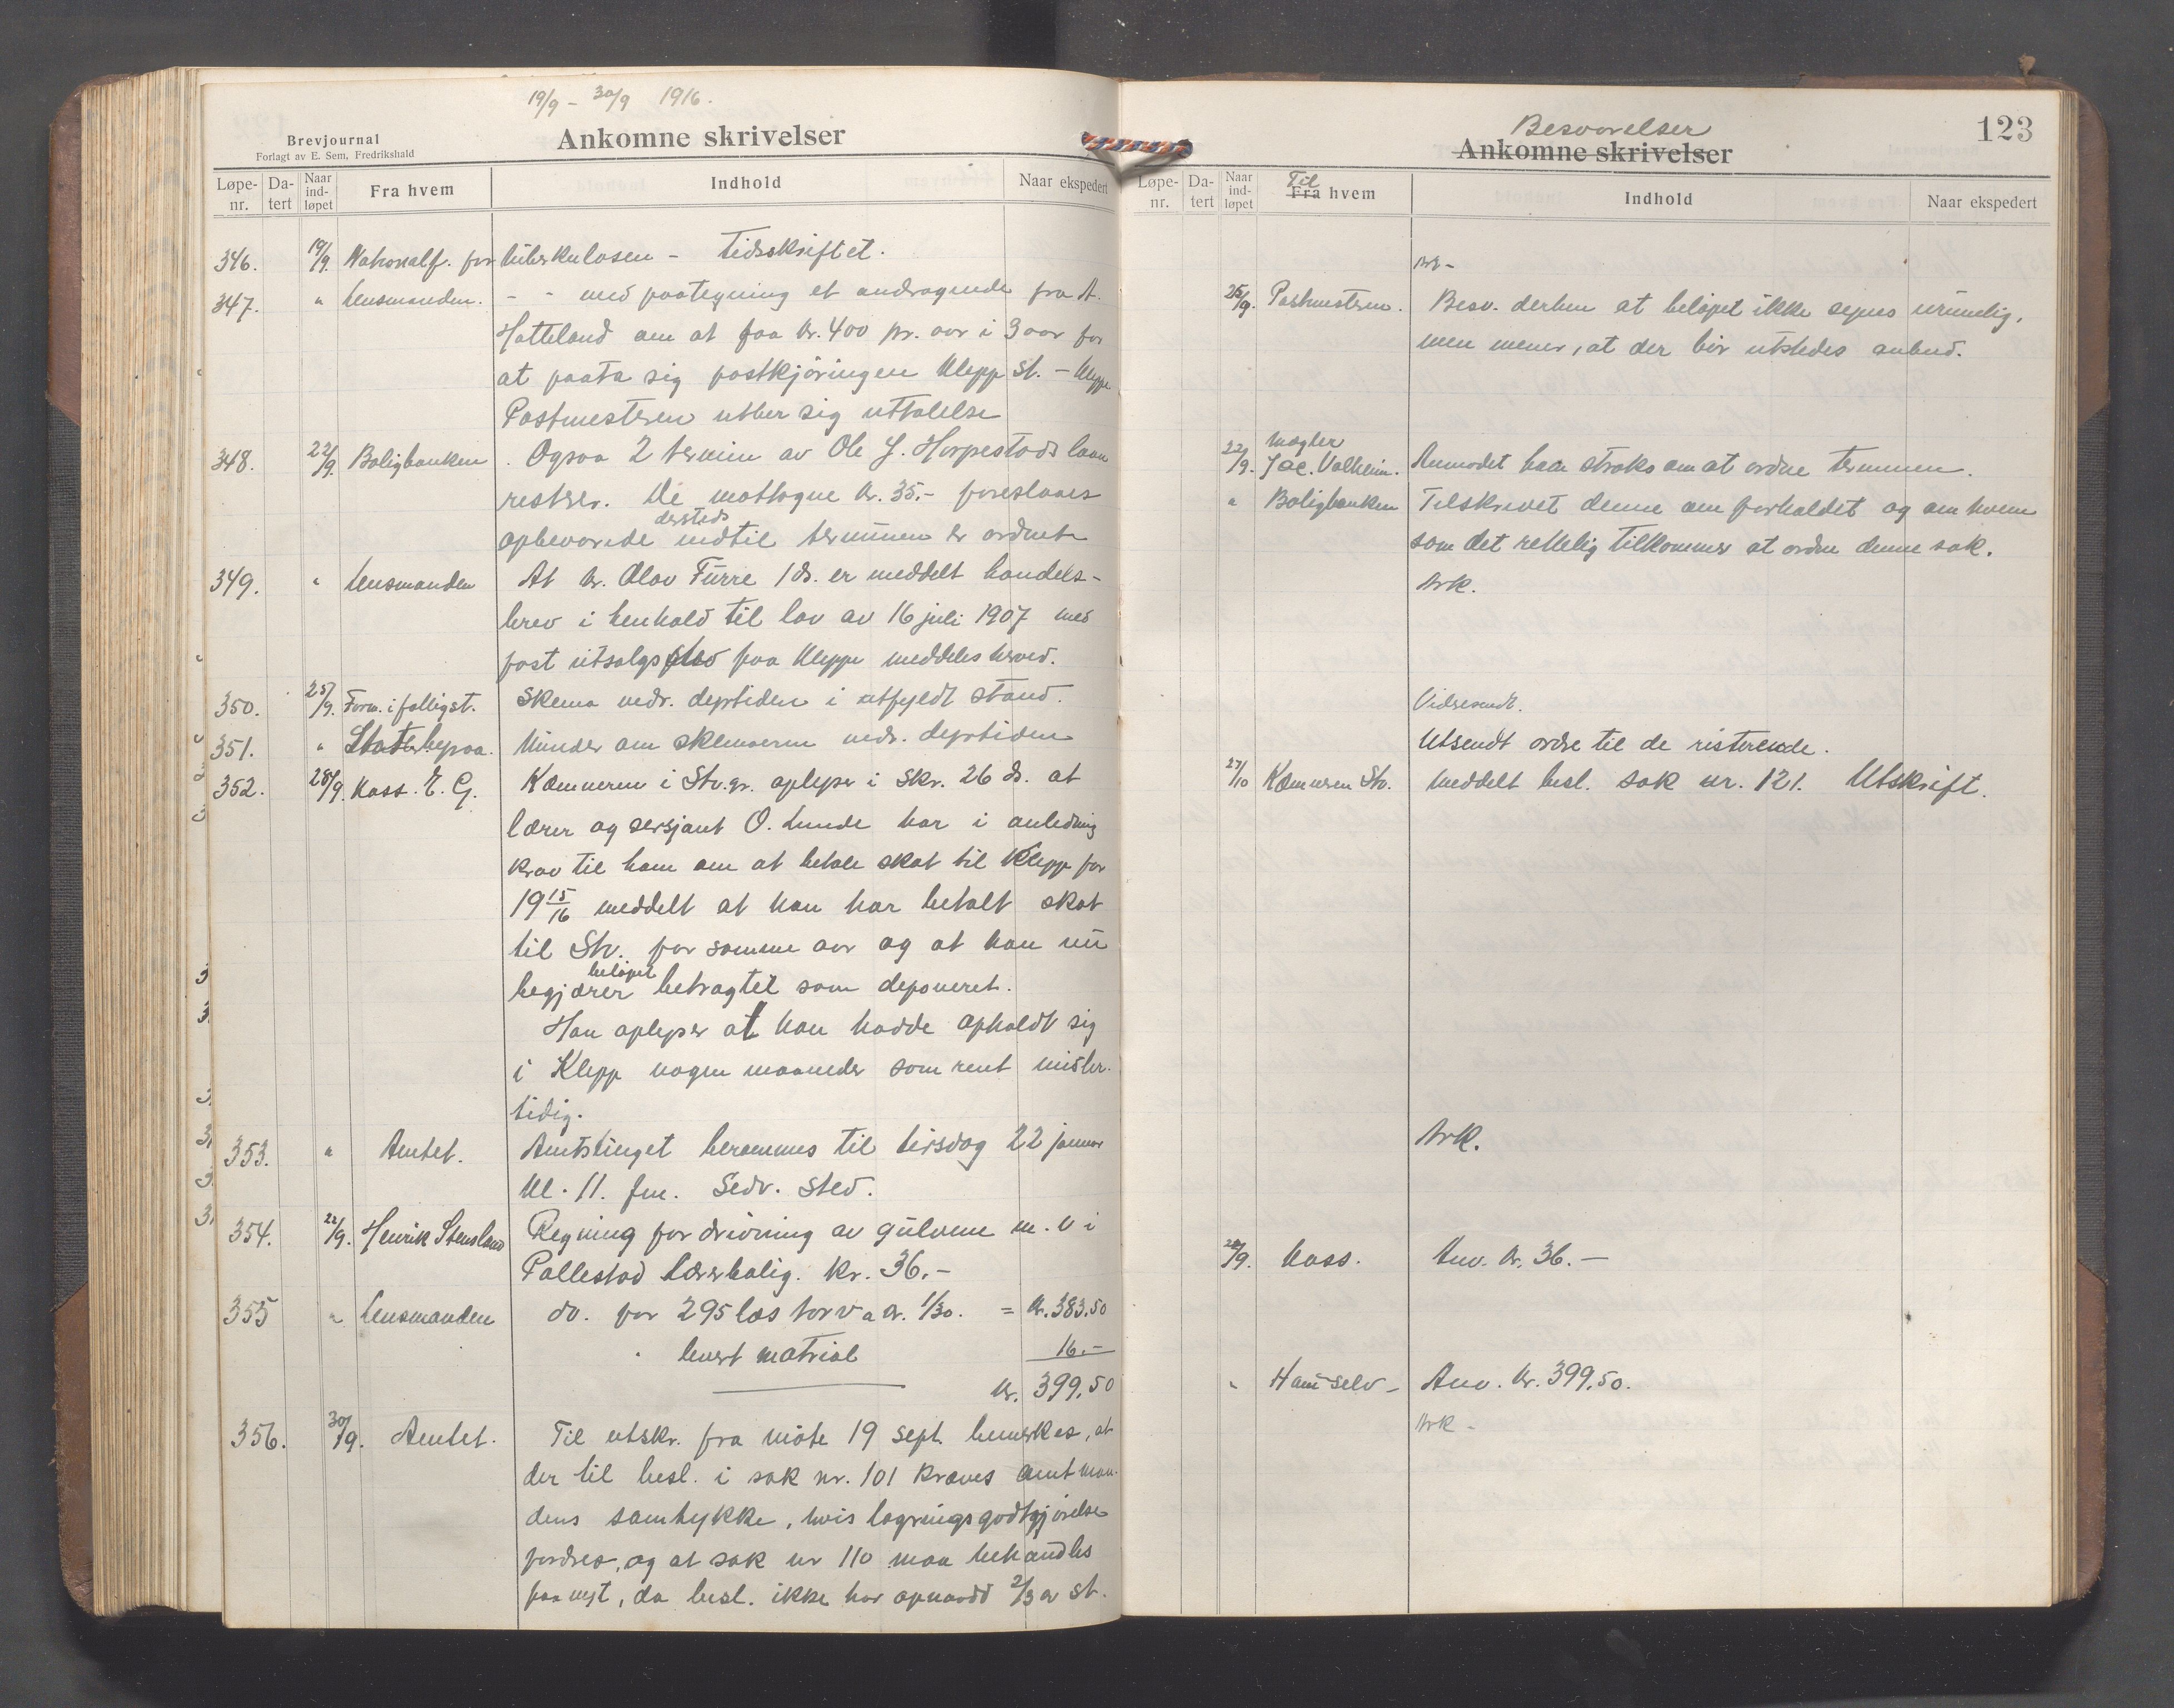 19/9 - 30/9 1916.
Brevjournal
Forlagt av E. Sem, Fredrikshald
Ankomne skrivelser
Løpe-nr. Da-tert Naar ind-løpet Fra hvem Indhold Naar ekspedert
346. 19/9. Nationalf. for tuberkulosen - Tidsskriftet.
347. " Lensmanden. - - med paategning et andragende fra A.
Hatteland om at faa kr. 400 pr. aar i 3 aar for
at paata sig postkjøringen Klepp st. - Kleppe
Postmesteren utber sig uttalelse
348. 22/9. Boligbanken. Ogsaa 2 termin av Ole J. Horpestads laan
resterer. De mottagne kr. 35.- foreslaaes
opbevarede dersteds indtil terminen er ordnet
349. " Lensmanden At hr. Olav Furre 1 ds. er meddelt handels-
brev i henhold til lov av 16 juli 1907 med
fast utsalgssted paa Kleppe meddeles herved.
350. 25/9. Form. i falligst. Skema vedr. dyrtiden i utfyldt stand.
351. " Minder om skemaerne vedr. dyrtiden
352. 28/9. Kass. E. G. Kæmneren i Stv.gr. oplyser i skr. 26 ds. at
lærer og sersjant O. Lunde har i anledning
krav til ham om at betale skat til Klepp for
19 15/16 meddelt at han har betalt skat
til Stv. for samme aar og at han nu
begjærer beløpet betragtet som deponeret.
Han oplyser at han hadde opholdt sig
i Klepp nogen maaneder som rent midler-
tidig.
353. " Amtet. Amtstinget berammes til tirsdag 22 januar
kl. 11. fm. Sedv. sted.
354. 22/9. Henrik Stensland Regning for drivning av gulvene m. v i
Pollestad lærerbolig. kr. 36.-
355 " Lensmanden do. for 295 læs torv a kr. 1/30. = kr. 383.50
" levert matrial 16.-
kr. 399.50
356. 30/9. Amtet. Til utskr. fra møte 19 sept. bemerkes, at
der til besl. i sak nr. 101 kræves amtman-
dens samtykke, hvis lagringsgodtgjørelse
fordres, og at sak nr 110 maa behandles
paa nyt, da besl. ikke har opnaadd 2/3 av st.
123
Besvarelser
Ankomne skrivelser
Løpe-nr. Da-tert Naar ind-løpet Til Fra hvem Indhold Naar ekspedert
Ark-
25/9. Postmesteren. Besv. derhen at beløpet ikke synes urimelig,
men mener, at der bør utstedes anbud.
22/9. Mægler Jac. Valheim. Anmodet ham straks om at ordne terminen.
" Boligbanken Tilskrevet denne om forholdet og om hvem
som det rettelig tilkommer at ordne denne sak.
Ark.
Videresendt.
Utsendt ordre til de resterende.
27/10 Kæmneren Stv. Meddelt besl. sak nr. 121. Utskrift.
Ark.
22/9. Kass. Anv. kr. 36.-
" Ham selv - Anv. kr. 399.50.
Ark -